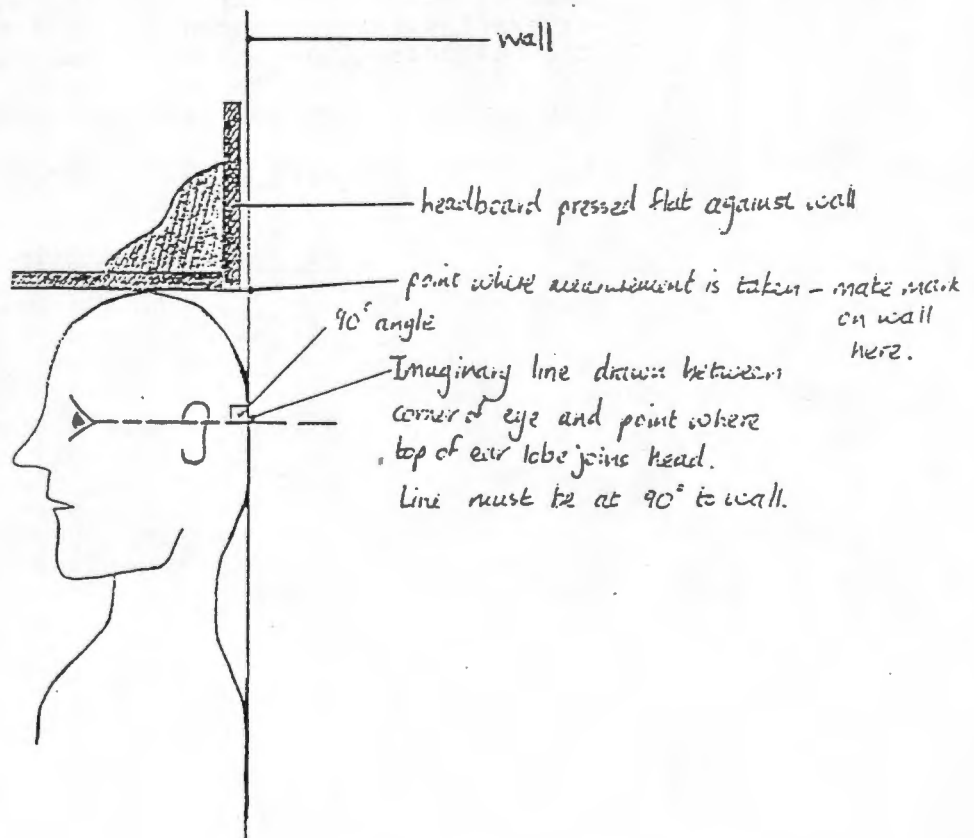 wall
headboard pressed flat against wall
point where measurement is taken – make mark
on wall
here.
90° angle
Imaginary line drawn between
corner of eye and point where
top of ear lobe joins head.
Line must be at 90° to wall.